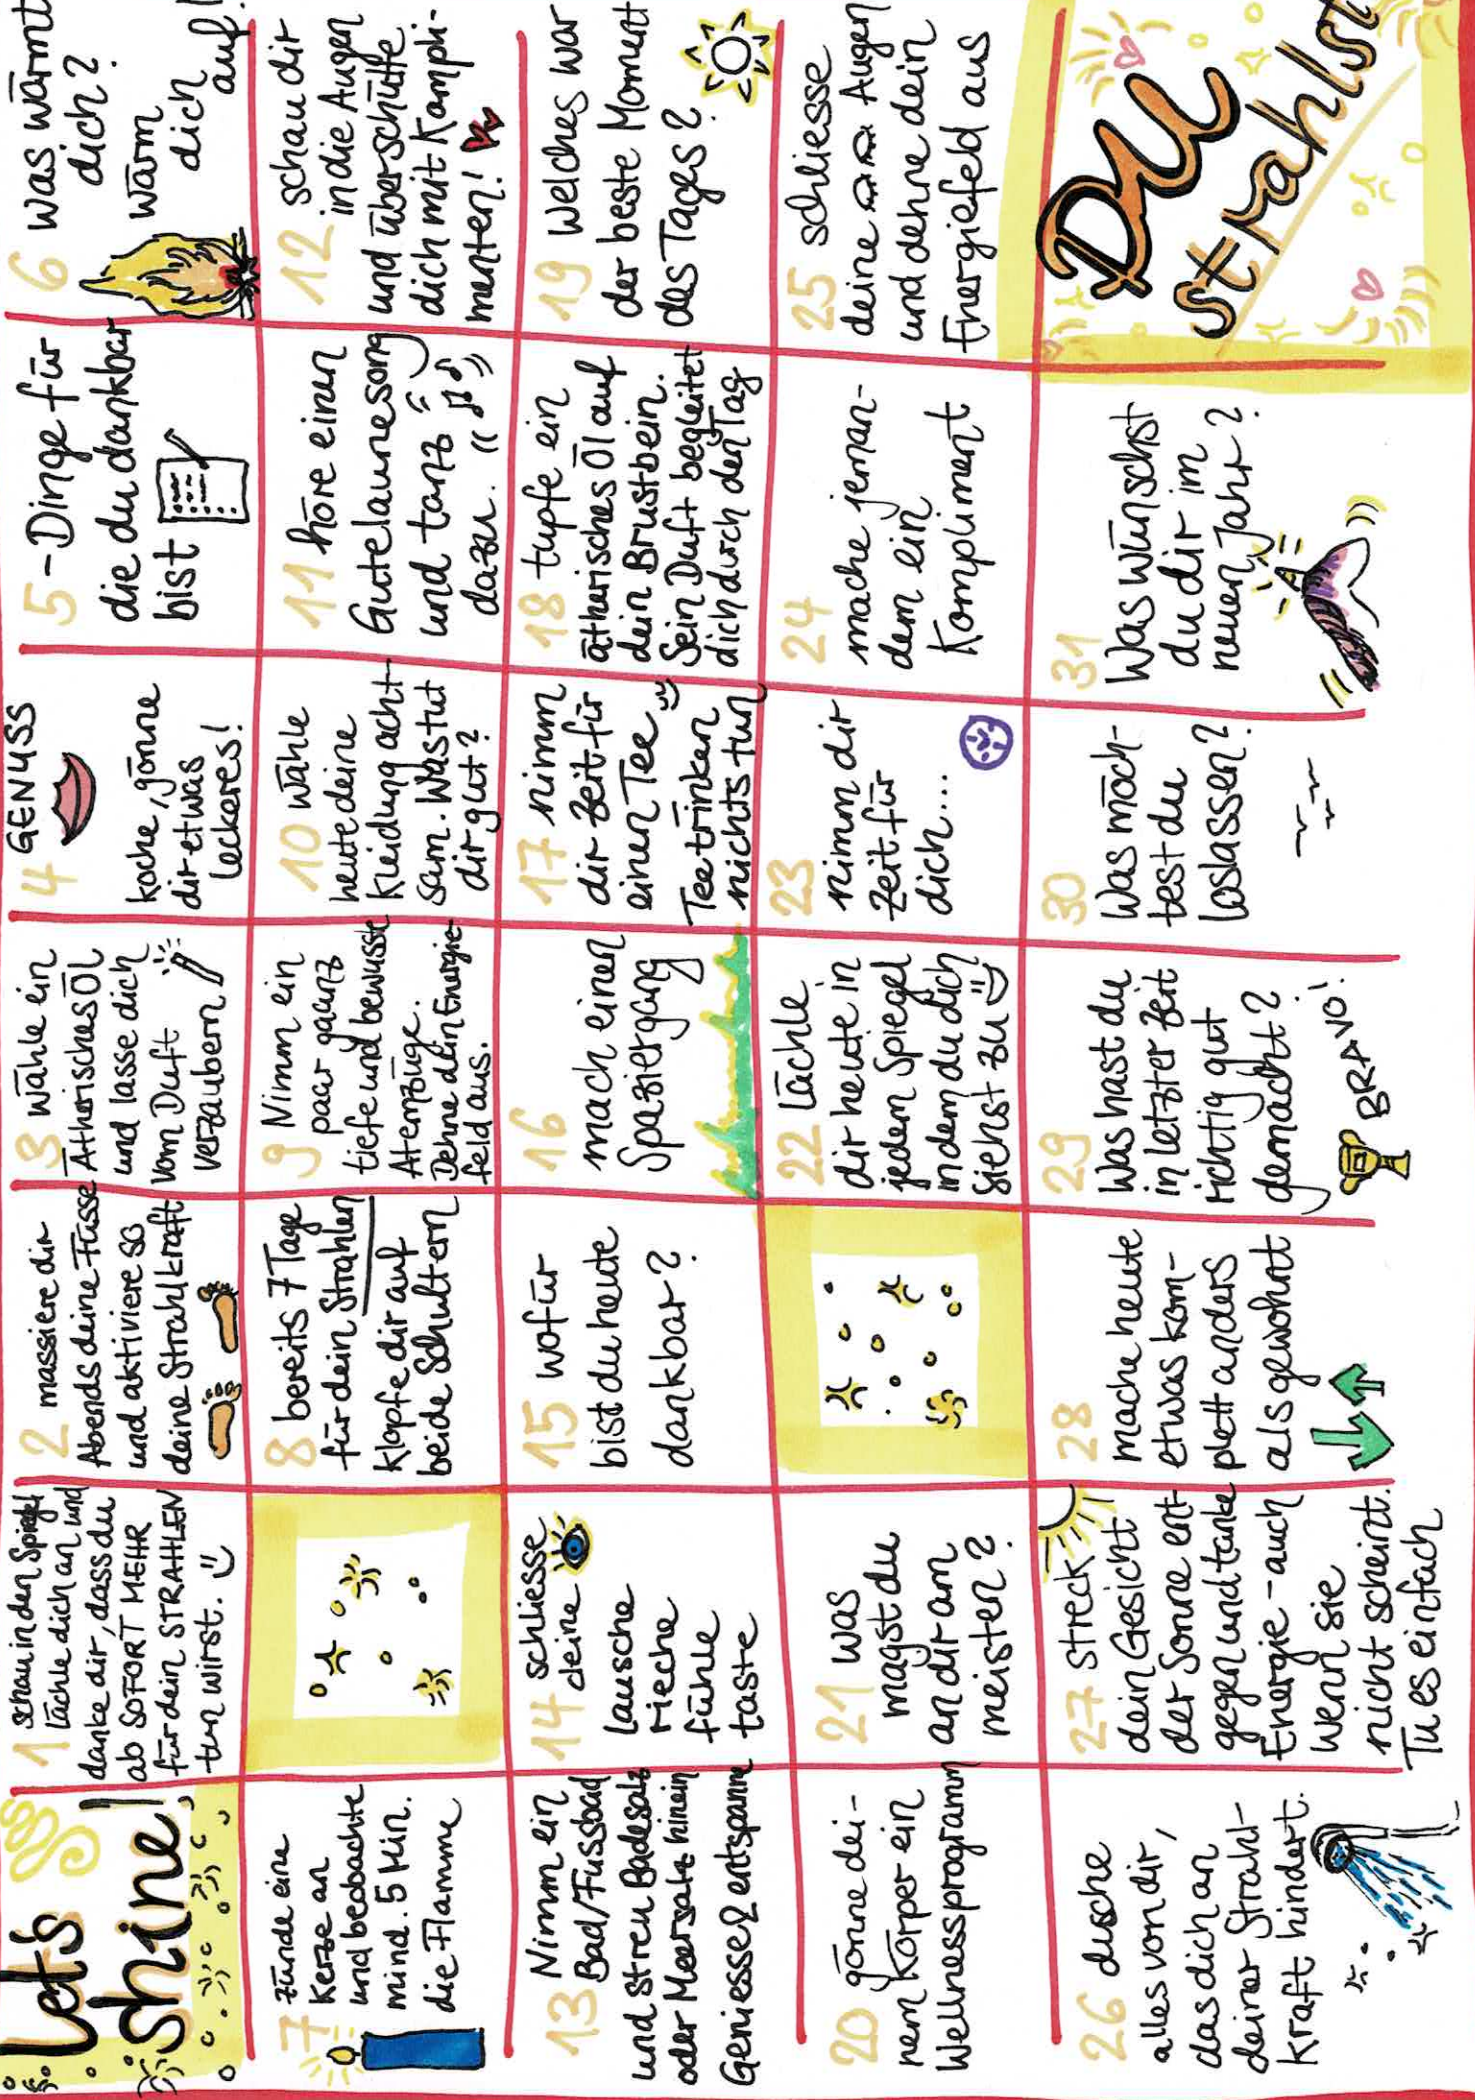 Let's
shine!
1 schau in den Spiegel
lächle dich an und
danke dir, dass du
ab SOFORT MEHR
für dein STRAHLEN
tun wirst.
2 massiere dir
Abends deine Füsse
und aktiviere so
deine Strahlkraft
3 wähle ein
Ätherisches Öl
und lasse dich
vom Duft
verzaubern
4 GENUSS
koche, gönne
dir etwas
leckeres!
5 - Dinge für
die du dankbar
bist
6 was wärmt
dich?
wärm
dich
auf!
7 zünde eine
Kerze an
und beobachte
mind. 5 Min.
die Flamme
8 bereits 7 Tage
für dein Strahlen
klopfe dir auf
beide Schultern
9 Nimm ein
paar ganz
tiefe und bewusste
Atemzüge.
Dehne dein Energie-
feld aus.
10 wähle
heute deine
Kleidung acht-
sam. Was tut
dir gut?
11 höre einen
Gutelaunesong
und tanz
dazu.
12 schau dir
in die Augen
und überschütte
dich mit Kompli-
menten!
13 Nimm ein
Bad/Fussbad
und streu Badesalz
oder Meersalz hinein
Geniesse & entspanne
14 schliesse
deine
lausche
rieche
fühle
taste
15 wofür
bist du heute
dankbar?
16
mach einen
Spaziergang
17 nimm
dir Zeit für
einen Tee
Tee trinken
nichts tun
18 tupfe ein
ätherisches Öl auf
dein Brustbein.
Sein Duft begleitet
dich durch den Tag
19 welches war
der beste Moment
des Tages?
20 gönne dei-
nem Körper ein
Wellnessprogramm
21 was
magst du
an dir am
meisten?
22 lächle
dir heute in
jedem Spiegel
indem du dich
siehst zu
23
nimm dir
Zeit für
dich....
24
mache jeman-
dem ein
Kompliment
25 schliesse
deine Augen
und dehne dein
Energiefeld aus
26 dusche
alles von dir,
das dich an
deiner Strahl-
kraft hindert.
27 streck
dein Gesicht
der Sonne ent-
gegen und tanke
Energie - auch
wenn sie
nicht scheint.
Tu es einfach
28
mache heute
etwas kom-
plett anders
als gewohnt
29
Was hast du
in letzter Zeit
richtig gut
gemacht?
BRAVO!
30
Was möch-
test du
loslassen?
31
Was wünschst
du dir im
neuen Jahr?
DU
strahlst